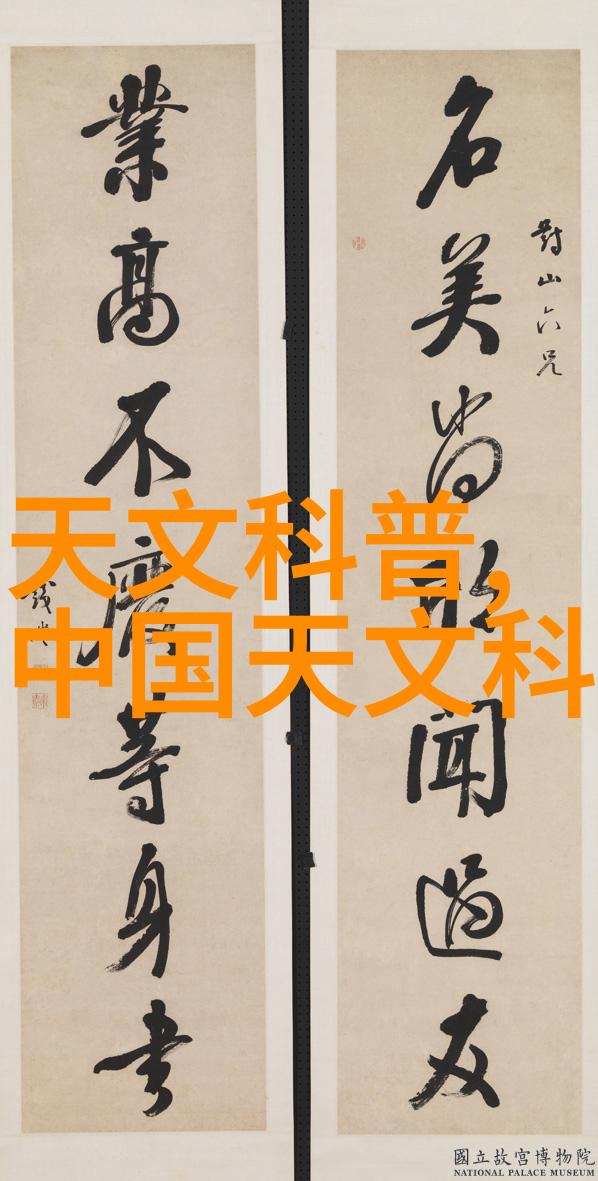 對山六兄
名美尚聞過友
業高不廢等身書
錢
天文科普,
中国天文科
國立故宮博物院
NATIONAL PALACE MUSEUM